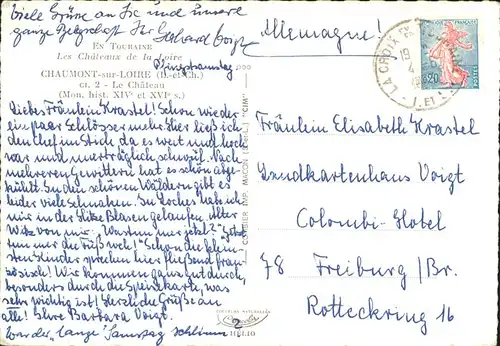 Viele Grüße an Sie und unsere
ganze Belegschaft Ihr
Gerhard Voigt
Pfingstsamstag
EN TOURAINE
Les Châteaux de la Loire
CHAUMONT-sur-LOIRE (L.-et-Ch.)
GI. 2 - Le Château
(Mon. hist. XIVe et XVIe s.)
Liebes Fräulein Krastel! Schon wieder
ein paar Schlösser mehr. Hier ließ ich
den Chef im Stich, da es weit und hoch
war und unerträglich schwül. Nach
mehreren Gewittern hat es schön abge-
kühlt. In den schönen Wäldern gibt es
leider viele Schnaken. In Loches hab ich
mir in der Hitze Blasen gelaufen. Alter
Witz von mir: Warum nur jetzt? Jetzt
tun mir die Füß weh! Schon die klein-
sten Kinder sprechen hier fließend fran-
zösisch! Wir kommen ganz gut durch,
besonders durch die Speisekarte, was
sehr wichtig ist! Herzliche Grüße an
alle! Ihre Barbara Voigt.
War der "lange" Samstag schlimm?
"CIM"
COMBIER IMP. MACON
Allemagne!
LA CROIX
19
4
I. ET L.
FRANÇAISE
POSTES
0,20
Fräulein Elisabeth Krastel
Landkartenhaus Voigt
Colombi-Hotel
78 Freiburg/Br.
Rotteckring 16
HELIO